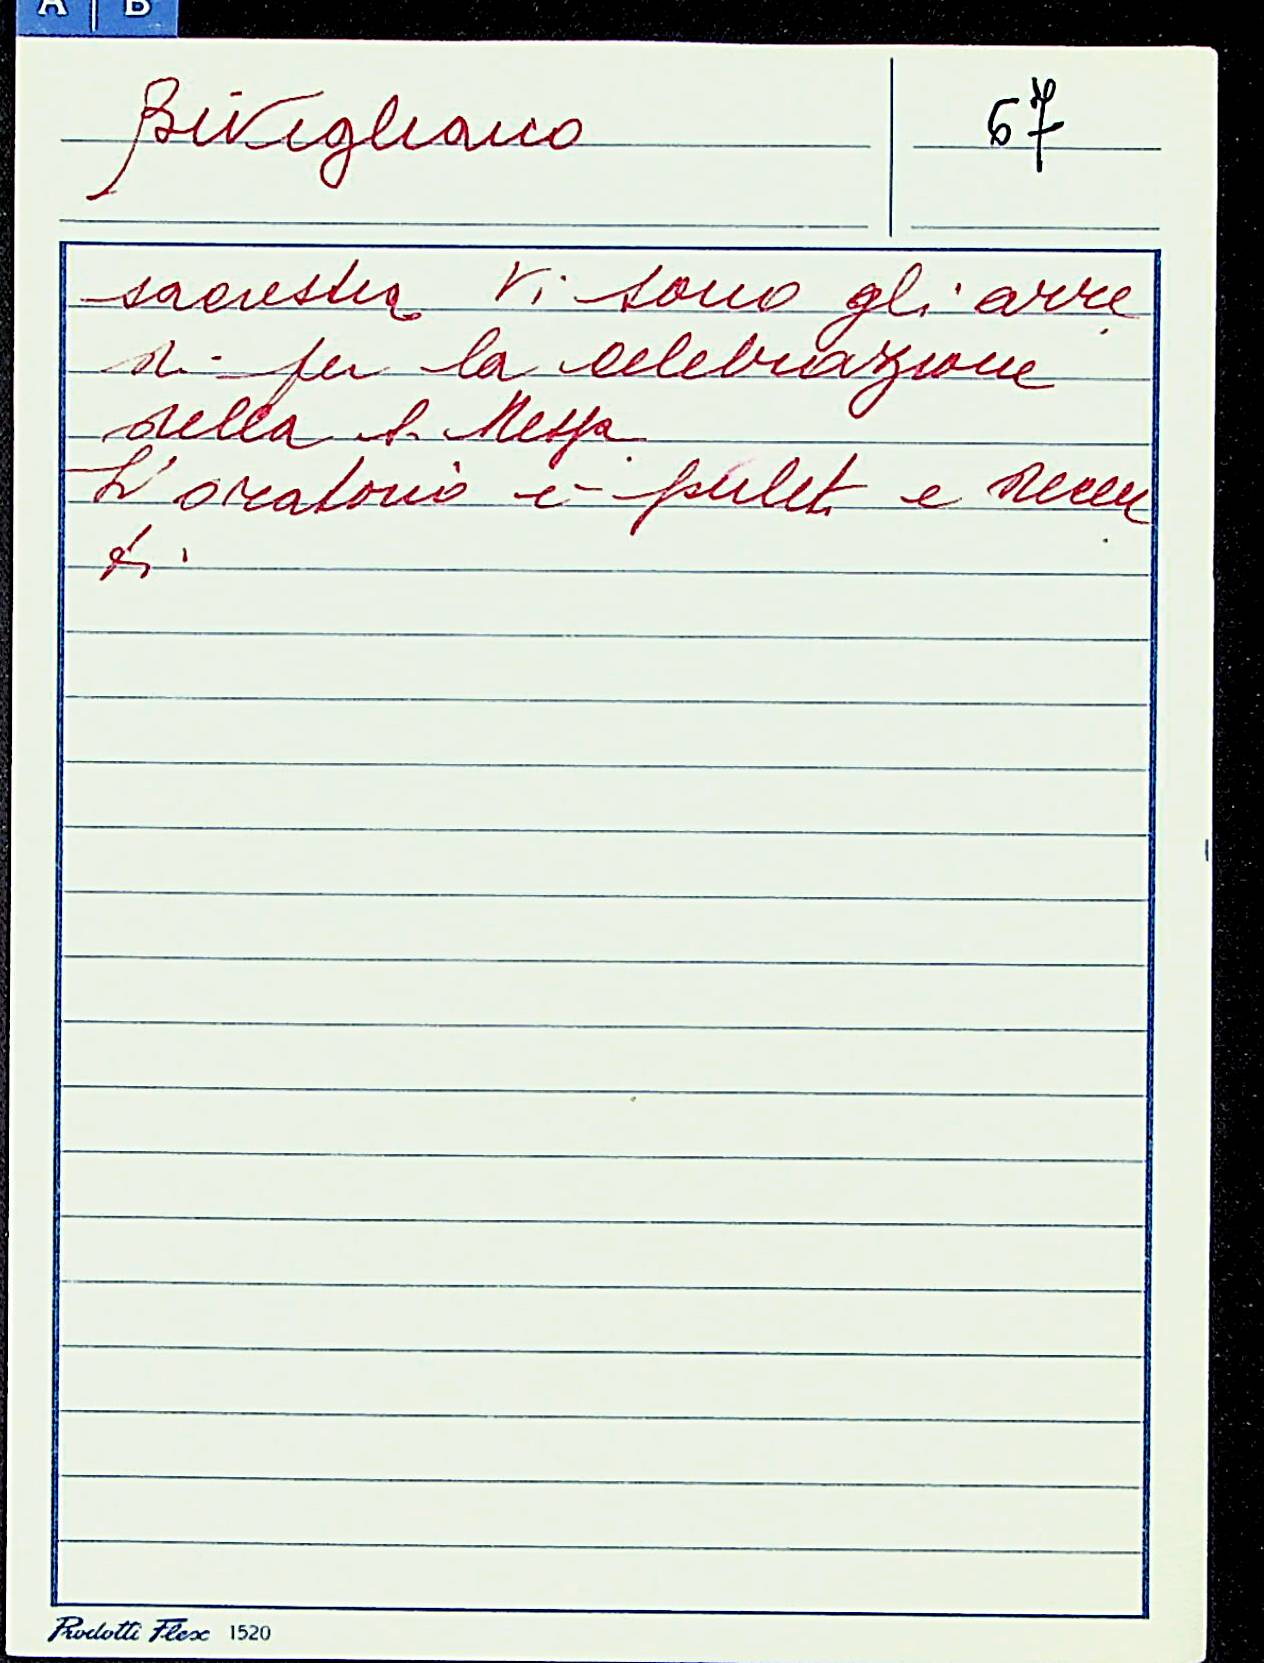 A B
Bivigliano
67
sacrestia vi sono gli arre
di per la celebrazione
della S. Messa
L'oratorio è pulito e decen
te.
Prodotti Flex 1520